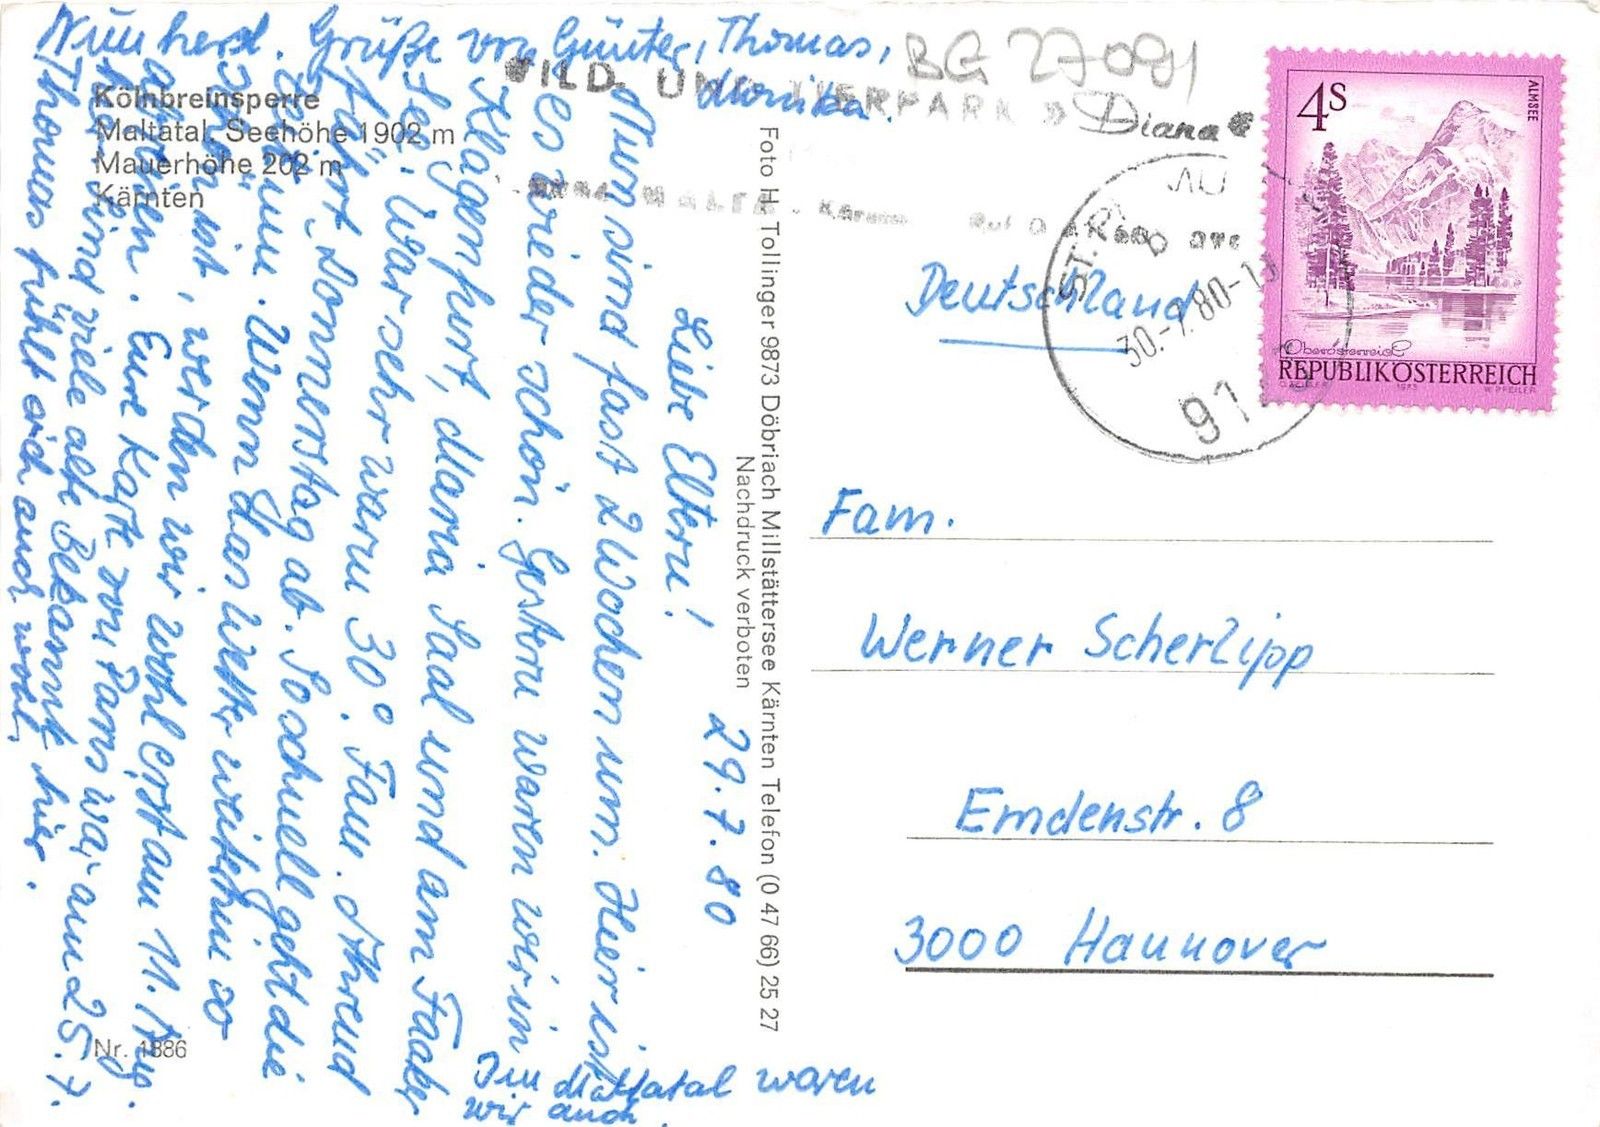 Kölnbreinsperre
Maltatal, Seehöhe 1902 m
Mauerhöhe 202 m
Kärnten
29.7.80
Liebe Eltern!
Nun sind fast 2 Wochen um. Hier ist
es wieder schön. Gestern waren wir in
Klagenfurt, Maria Saal und am Faaker
See. War sehr warm 30°. Fam.
fährt Donnerstag ab. So schnell geht die
Zeit um. Wenn das Wetter weiterhin so
schön ist, werden wir wohl erst am 11. Aug.
abreisen. Eure Karte von Pans war am 25.7.
hier. Sind viele alte Bekannte hier.
Thomas fühlt sich auch wohl.
Nun herzl. Grüße von Günter, Thomas,
Monika.
Im Maltatal waren
wir auch.
Nr. 1886
Foto H. Tollinger 9873 Döbriach Millstättersee Kärnten Telefon (0 47 66) 25 27
Nachdruck verboten
BG 27091
WILD- UND TIERPARK » Diana «
MALTA - Kärnten
ST.
30.-7.80-1
ALMSEE
4S
Oberösterreich
REPUBLIK ÖSTERREICH
1973
Deutschland
Fam.
Werner Scherlipp
Emdenstr. 8
3000 Hannover